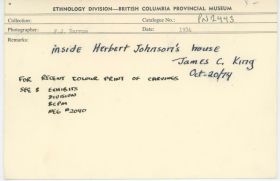 ETHNOLOGY DIVISION—BRITISH COLUMBIA PROVINCIAL MUSEUM
Collection: Catalogue No.: PN 2443
Photographer: Date: 1934
Remarks:
inside Herbert Johnson's house
James C. King
Oct-20/79
FOR RECENT COLOUR PRINT OF CARVINGS
SEE: EXHIBITS
DIVISION
BCPM
NEG # 2040